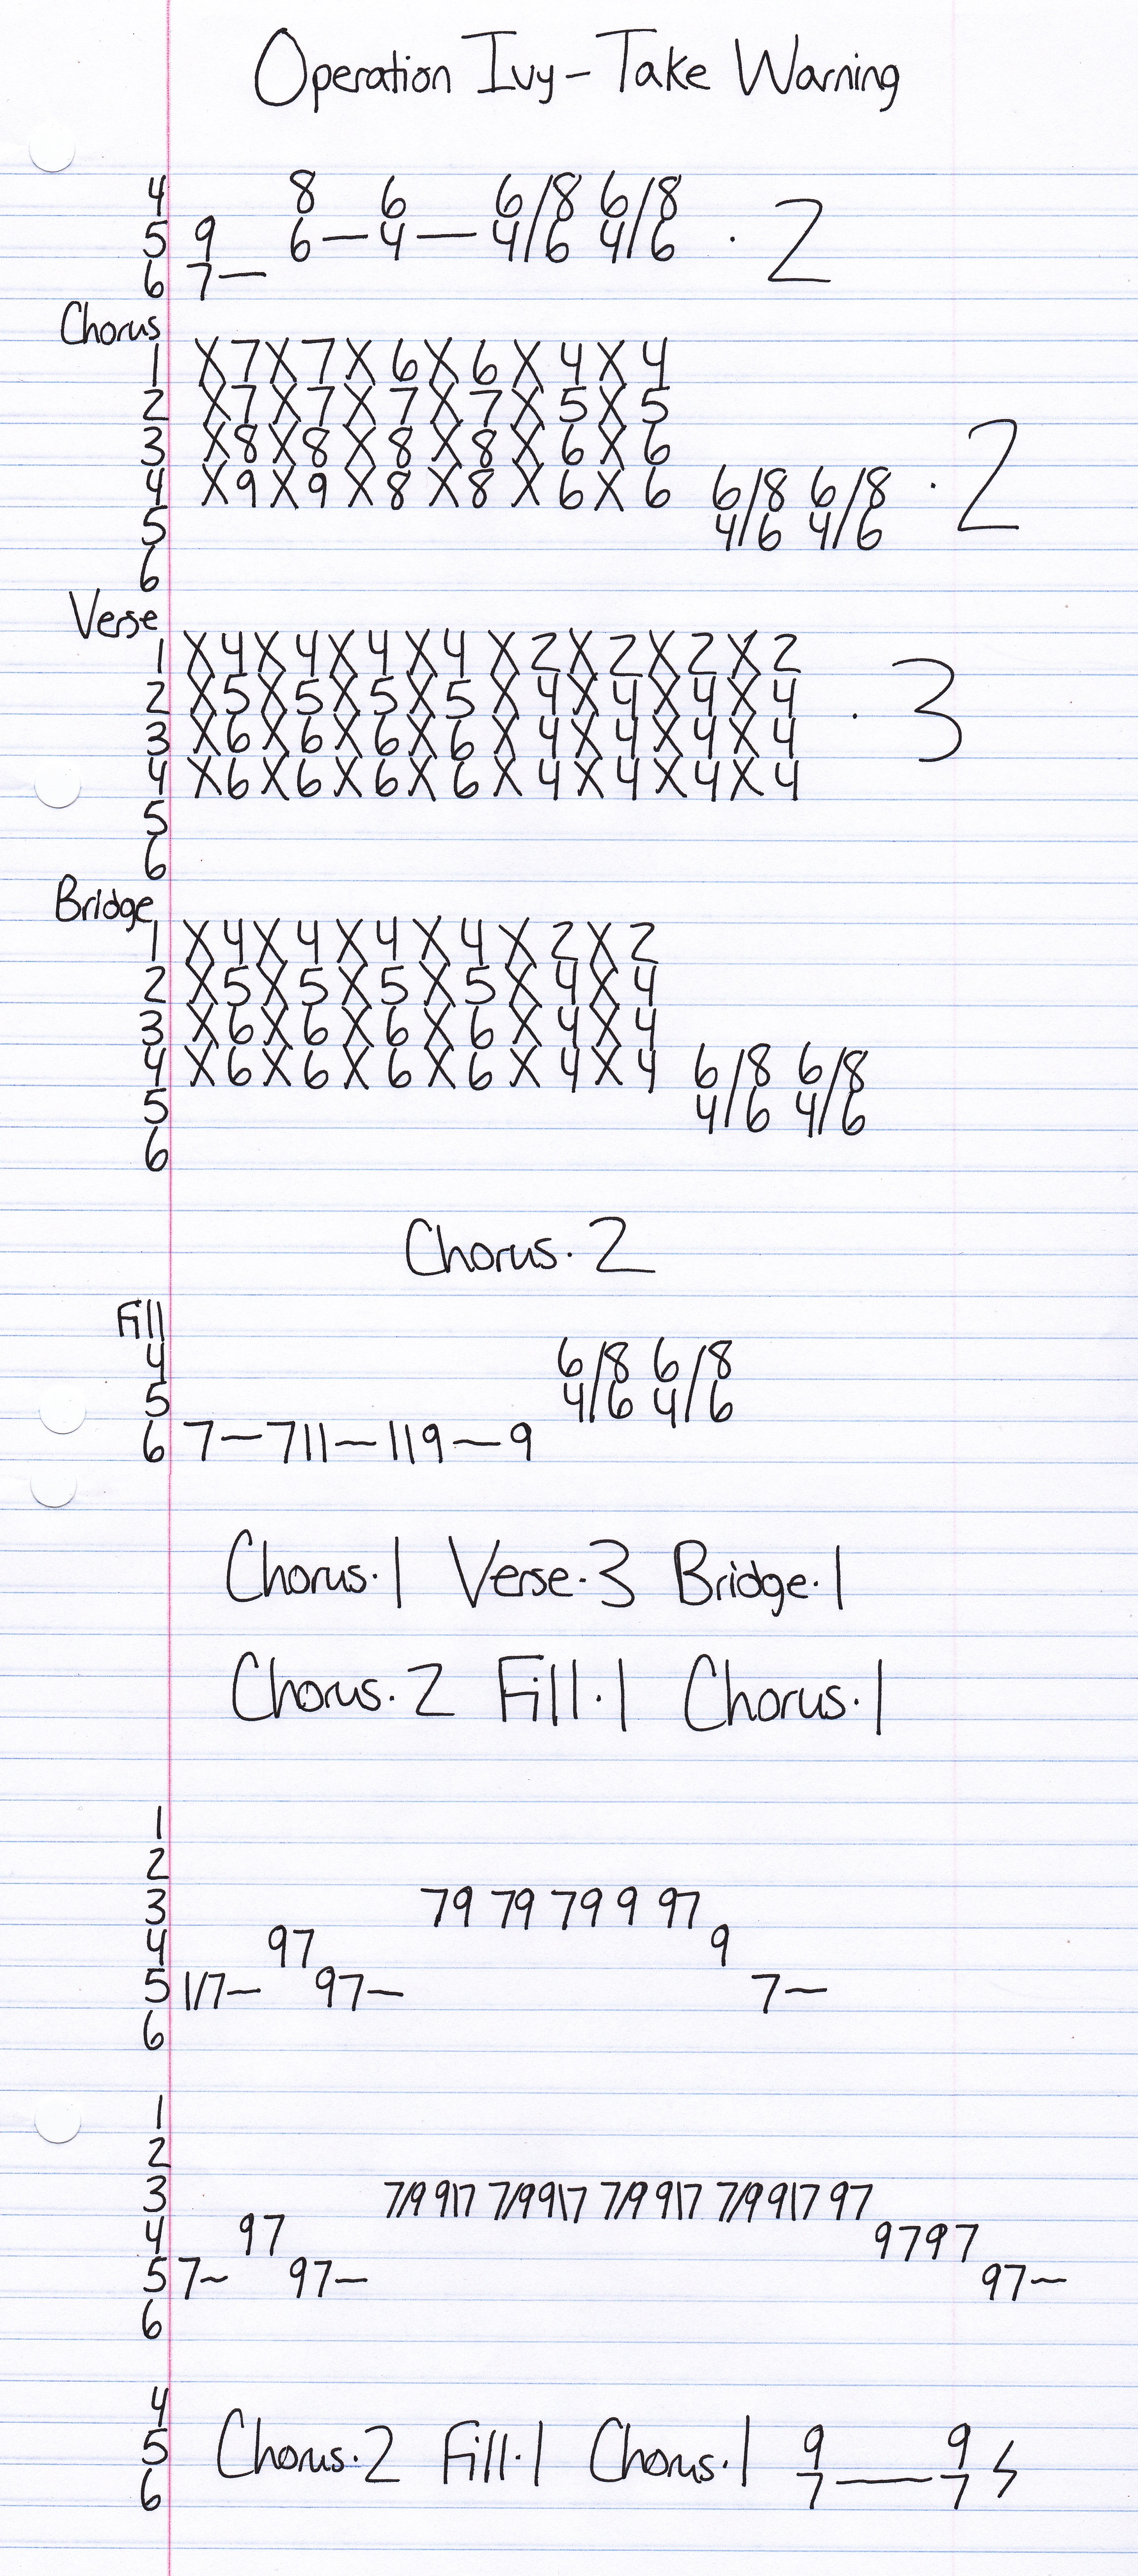 Operation Ivy – Take Warning
4 8 6 6/8 6/8
5 9 6 — 4 — 4/6 4/6 · 2
6 7 —
Chorus
1 X 7 X 7 X 6 X 6 X 4 X 4
2 X 7 X 7 X 7 X 7 X 5 X 5
3 X 8 X 8 X 8 X 8 X 6 X 6
4 X 9 X 9 X 8 X 8 X 6 X 6 6/8 6/8 · 2
5 4/6 4/6
6
Verse
1 X 4 X 4 X 4 X 4 X 2 X 2 X 2 X 2
2 X 5 X 5 X 5 X 5 X 4 X 4 X 4 X 4 · 3
3 X 6 X 6 X 6 X 6 X 4 X 4 X 4 X 4
4 X 6 X 6 X 6 X 6 X 4 X 4 X 4 X 4
5
6
Bridge
1 X 4 X 4 X 4 X 4 X 2 X 2
2 X 5 X 5 X 5 X 5 X 4 X 4
3 X 6 X 6 X 6 X 6 X 4 X 4
4 X 6 X 6 X 6 X 6 X 4 X 4 6/8 6/8
5 4/6 4/6
6
Chorus · 2
Fill
4 6/8 6/8
5 4/6 4/6
6 7 — 7 11 — 11 9 — 9
Chorus · 1 Verse · 3 Bridge · 1
Chorus · 2 Fill · 1 Chorus · 1
1
2
3 79 79 79 9 97
4 97 9
5 1/7 — 97 — 7 —
6
1
2
3 7/9 9\7 7/9 9\7 7/9 9\7 7/9 9\7 97
4 97 9797
5 7 ~ 97 — 97 —
6
4
5 Chorus · 2 Fill · 1 Chorus · 1 9 9
6 7 — 7